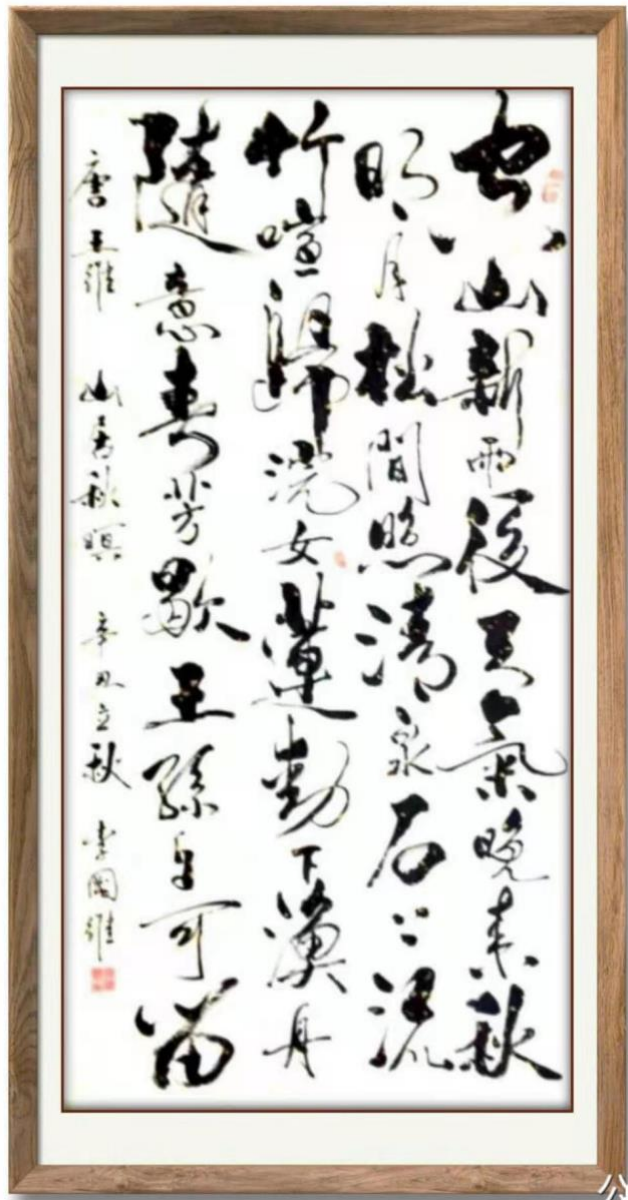 空山新雨後天氣晚来秋
明月松間照清泉石上流
竹喧歸浣女蓮動下漁舟
隨意春芳歇王孫自可留
唐王維 山居秋暝 辛丑立秋 李國維
公